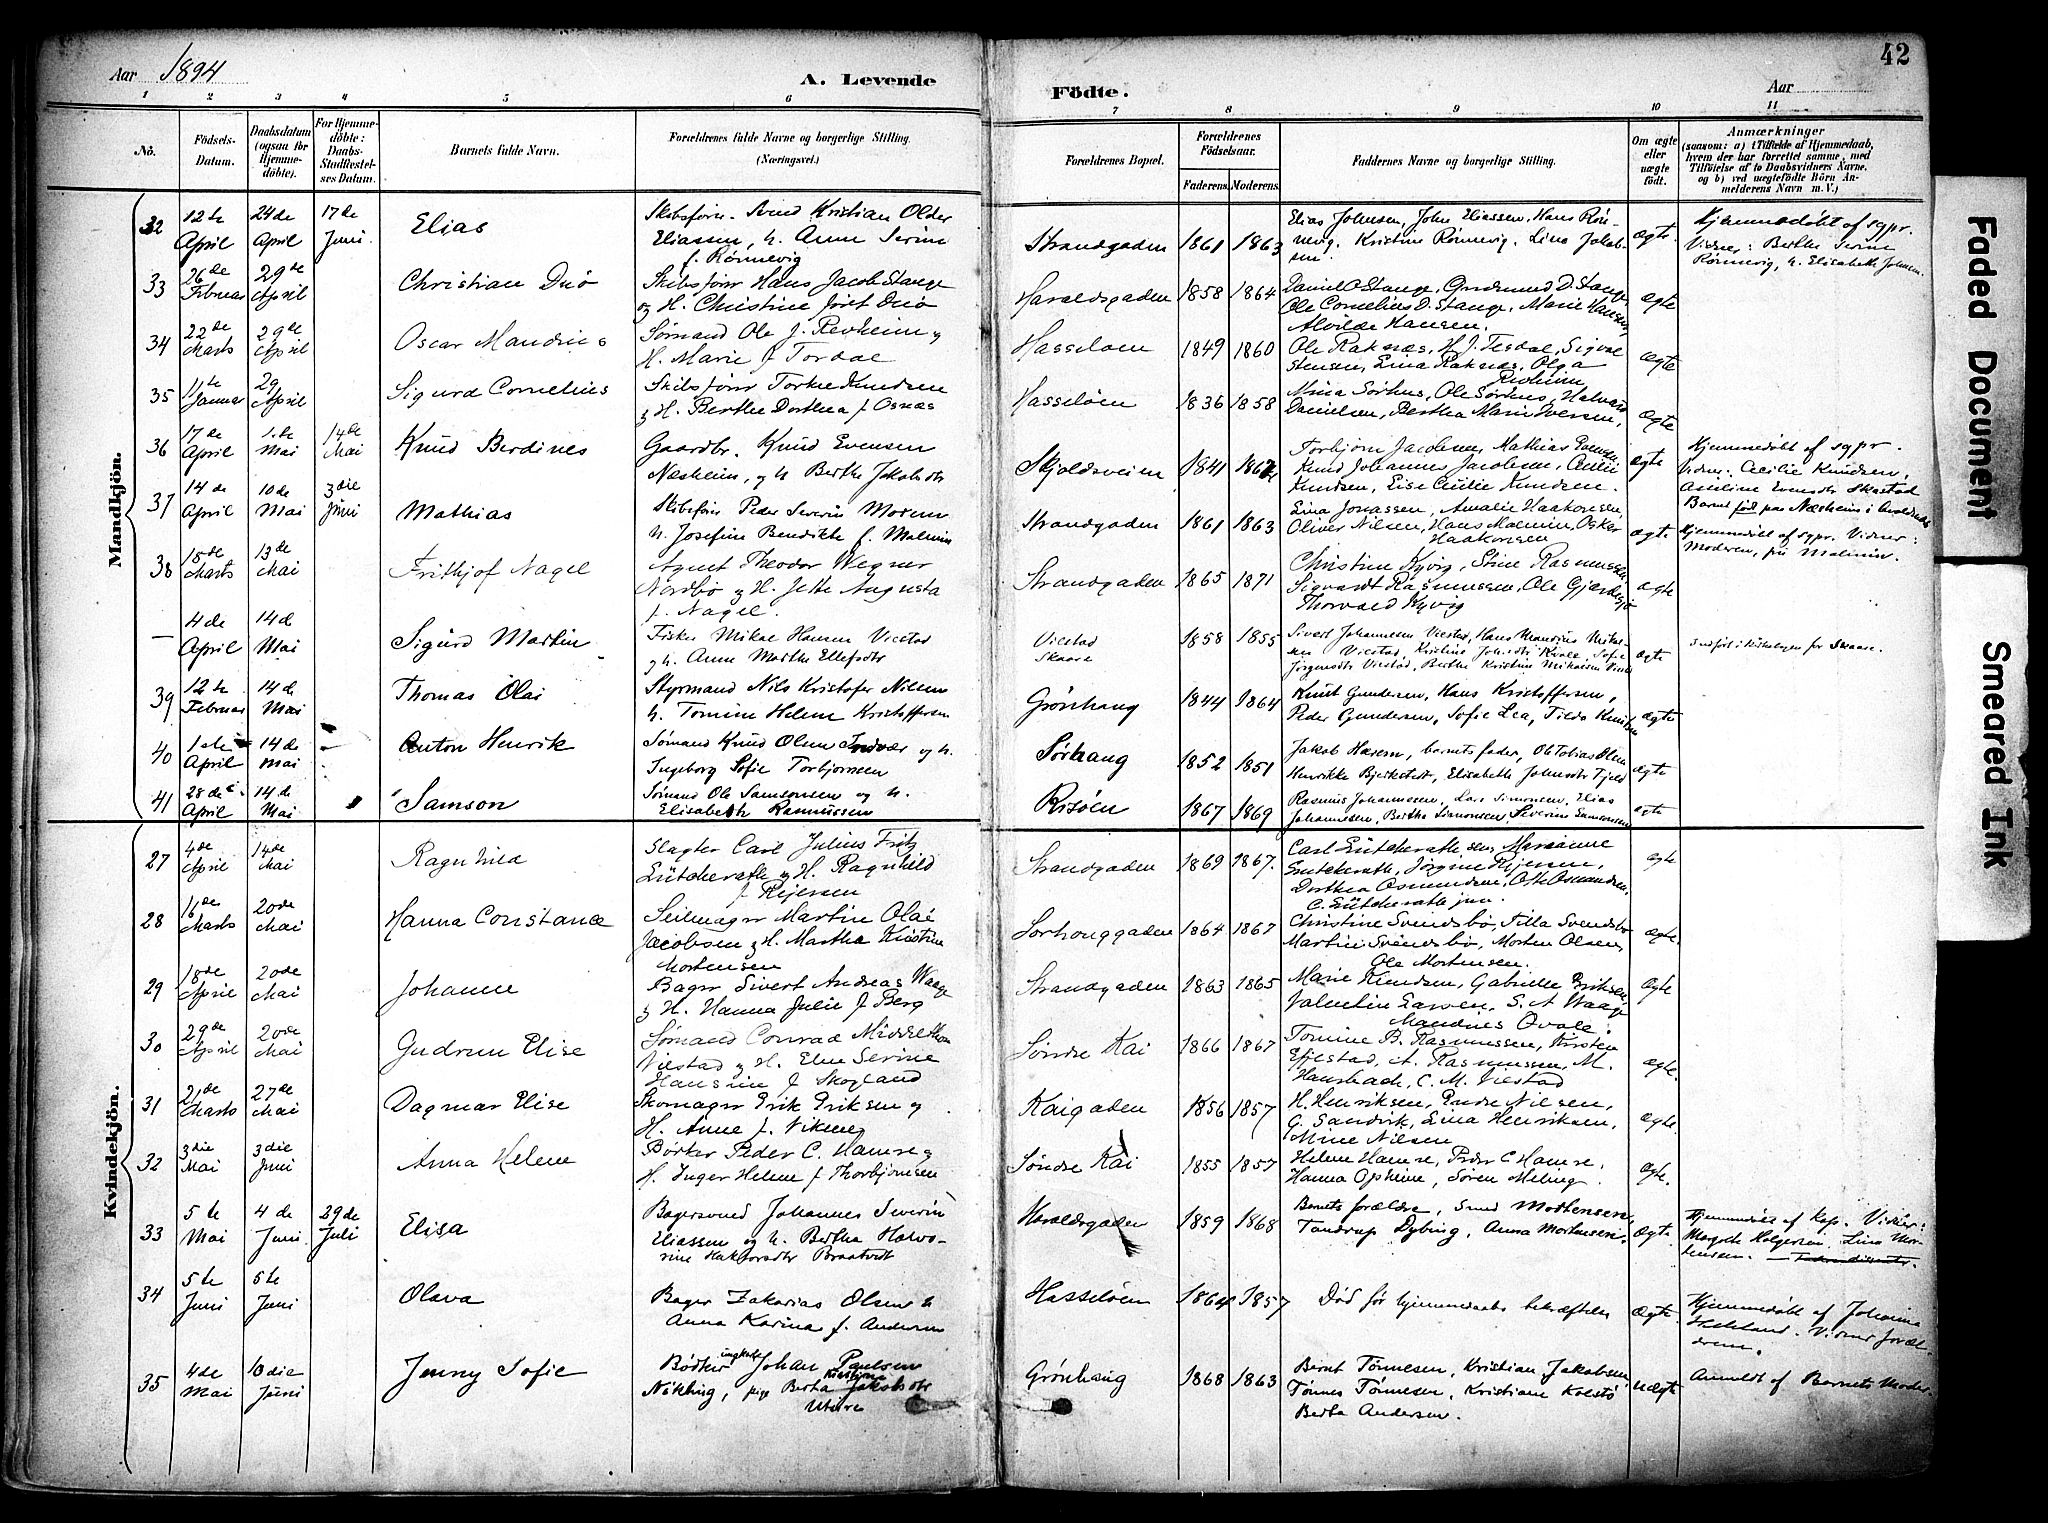 Aar 1894
A. Levende
Födte.
Aar
42
1 2 3 4 5 6 7 8 9 10 11
No.
Födsels-
Datum.
Daabsdatum
(ogsaa for
Hjemme-
döbte).
For Hjemme-
döbte:
Daabs-
Stadfæstel-
ses Datum.
Barnets fulde Navn.
Forældrenes fulde Navne og borgerlige Stilling.
(Næringsvei.)
Forældrenes Bopæl.
Forældrenes
Födselsaar.
Faderens.
Moderens.
Faddernes Navne og borgerlige Stilling.
Om ægte
eller
uægte
födt.
Anmærkninger
(saasom: a) i Tilfælde af Hjemmedaab,
hvem der har forrettet samme, med
Tilföielse af to Daabsvidners Navne,
og b) ved uægtefödte Börn An-
melderens Navn m. V.)
Mandkjön.
32 12te April 24de April 17de Juni Elias
Skibsförer Svend Kristian Older
Eliassen, h. Anne Serine
f. Rönnevig
Strandgaden 1861 1863
Elias Johnsen, John Eliassen, Hans Rön-
nevig, Kristine Rönnevig, Lina Jakob-
sen.
ægte.
Hjemmedöbt af sgpr.
Vidner: Berthe Serine
Rönnevig, h. Elisabeth Johnsen.
33 26de Februar 29de April Christian Duö
Skibsförer Hans Jacob Stange
og H. Christine fört Duö
Haraldsgaden 1858 1864
Daniel O Stange, Gudmund D. Stange,
Ole Cornelius D. Stange, Marie Hansen,
Alvilde Hansen.
ægte
34 22de Marts 29de April Oscar Mandrius
Sömand Ole J. Revheim og
H. Marie f Tordal
Hasselöen 1849 1860
Ole Raknæs, H. J. Tesdal, Sigval
Stensen, Lina Raknæs, Olga
Revheim
ægte
35 11te Januar 29 April Sigurd Cornelius
Skibsförer Torkel Knudsen
og H. Berthe Dorthea f Osnæs
Hasselöen 1836 1858
Mina Sörhus, Ole Sörhus, Halvard
Danielsen, Bertha Marie Iversen,
ægte
36 17de April 1.de Mai 14de Mai Knud Berdines
Gaardbr. Knud Evensen
Næsheim, og h Berthe Jakobsdtr
Skjoldsveien 1841 1862
Torbjörn Jacobsen, Mathias Evensen,
Knud Johannes Jacobsen, Cecilie
Knudsen, Lise Cecilie Knudsen.
ægte
Hjemmedöbt af sgpr.
Vidner: Cecilie Knudsen,
37 14de April 10de Mai 3die Juni Mathias
Skibsförer Peder Severin
h. Josefine Bendikte f. Malmin
Strandgaden 1861 1863
Lina Jonassen, Amalie Haakonsen,
Oliver Nilsen, Hans Malmin, Oskar
Haakonsen
ægte
Hjemmedöbt af sgpr. Vidner:
Moderen,
38 18de Marts 13de Mai Frithjof Nagel
Agent Theodor Wegner
Nordbö og H. Jette Augusta
f. Nagel.
Strandgaden 1865 1871
Christine Kyvig, Stine Rasmussen,
Sigvardt Rasmussen, Ole Gjerdesjö
Thorvald Kyvig
ægte
— 4de April 14de Mai Sigurd Martin
Fisker Mikal Hansen Viestad
og h. Anne Marthe Ellefsdtr
Viestad
Skaare
1858 1855
Sivert Johannesen Viestad, Hans Mandius Mikal-
sen Viestad, Kristine Johsdtr Kvale, Sofie
Jörgensdtr Viestad, Berthe Kristine Mikalsen
ægte
Indfört i Kirkebogen for Skaare.
39 12te Februar 14de Mai Thomas Olai
Styrmand Nils Kristofer Nilsen
h. Tomine Helene Kristoffersen
Grönhaug 1844 1864
Knut Gundersen, Hans Kristoffersen,
Peder Gundersen, Sofie Lea, Tilda Knutsen
ægte
40 1ste April 14de Mai Anton Henrik
Sömand Knud Olsen Indvær og h.
Ingeborg Sofie Torbjornsen
Sörhaug 1852 1851
Jakob Hansen, barnets fader, Ole Tobias Olsen
Henrikke Bjerkstedt, Elisabeth Johnsdtr Fjeld
ægte
41 28de April 14de Mai Samson
Sömand Ole Samsonsen og h.
Elisabeth Rasmussen
Risöen 1867 1869
Rasmus Johannesen, Lars Simonsen, Elias
Johannesen, Bertha Simonsen, Severine Samsonsen
ægte
Kvindekjön.
27 4de April 14de Mai Ragnhild
Slagter Carl Julius Fritz
Lütcherath og H. Ragnhild
f Rejersen
Strandgaden 1869 1867.
Carl Lütcherath sen, Marianne
Lütcherath, Jörgine Rejersen,
Dorthea Osmundsen, Otto Osmundsen,
C. Lütcherath jun.
ægte
28 16de Marts 20de Mai Hanna Constance
Seilmager Martin Olai
Jacobsen og H. Martha Kristine
Mortensen
Sorhauggaden 1864 1867
Christine Svendsbö, Tilla Svendsbö
Martin Svendsbö, Morten Olsen,
Ole Mortensen.
ægte.
29 18de April 20de Mai Johanne
Bager Sivert Andreas Waage
og H. Hanna Julie f Berg
Strandgaden 1863 1865
Marie Knudsen, Gabrielle Eriksen,
Valentin Larsen, S. A Waage
Mandius Qvale.
ægte
30 29de April 20de Mai Gudrun Elise
Sömand Conrad Middelthon
Viestad og H. Elen Serine
Hansine f Skogland
Söndre Kai 1866 1867
Tomine B. Rasmussen, Kirsten
Efjestad, A. Rasmussen, M.
Hausbach, C. M. Viestad
ægte.
31 21de Marts 27de Mai Dagmar Elise
Skomager Erik Eriksen og
H. Anne f. Vikene
Kaigaden 1856 1857
H. Henriksen, Endre Nilsen,
G. Sandvik, Lina Henriksen,
Mine Nilsen
ægte.
32 3die Mai 3die Juni Anna Helene
Bödker Peder C. Hamre og
H. Inger Helene f Thorbjörnsen
Söndre Kai 1855 1857
Helene Hamre, Peder C Hamre,
Hanna Opheim, Sören Meling.
ægte.
33 5te Mai 4de Juni 29de Juli Elisa
Bagersvend Johannes Severin
Eliassen og h. Bertha Halvo-
rine Haktorsdtr Braatvedt
Haraldsgaden 1859 1868
Barnets forældre, Svend Mortensen,
Tandrup Dybing, Anna Mortensen.
ægte
Hjemmedöbt af Kap. Vidner:
Magda Holgersen. Lina Mor-
tensen.
34 5te Juni 5te Juni Olava
Bager Zakarias Olsen h
Anna Karina f. Andersen
Hasselöen 1864 1857
Död för hjemmedaabs bekræftelse
ægte.
Hjemmedöbt af Johanna
Vidner foræl-
drene.
35 4de Mai 10die Juni Jenny Sofie
Bödker ungkarl Johan Paulsen
Nökling, pige Berta Kristine Jakobsdtr
Utvire
Grönhaug 1868 1863
Bernt Tönnesen, Kristian Jakobsen,
Tönnes Tönnesen, Kristiane Kolstö
Berta Andersen.
uægte
Anmeldt af Barnets Moder.
Faded Document
Smeared Ink